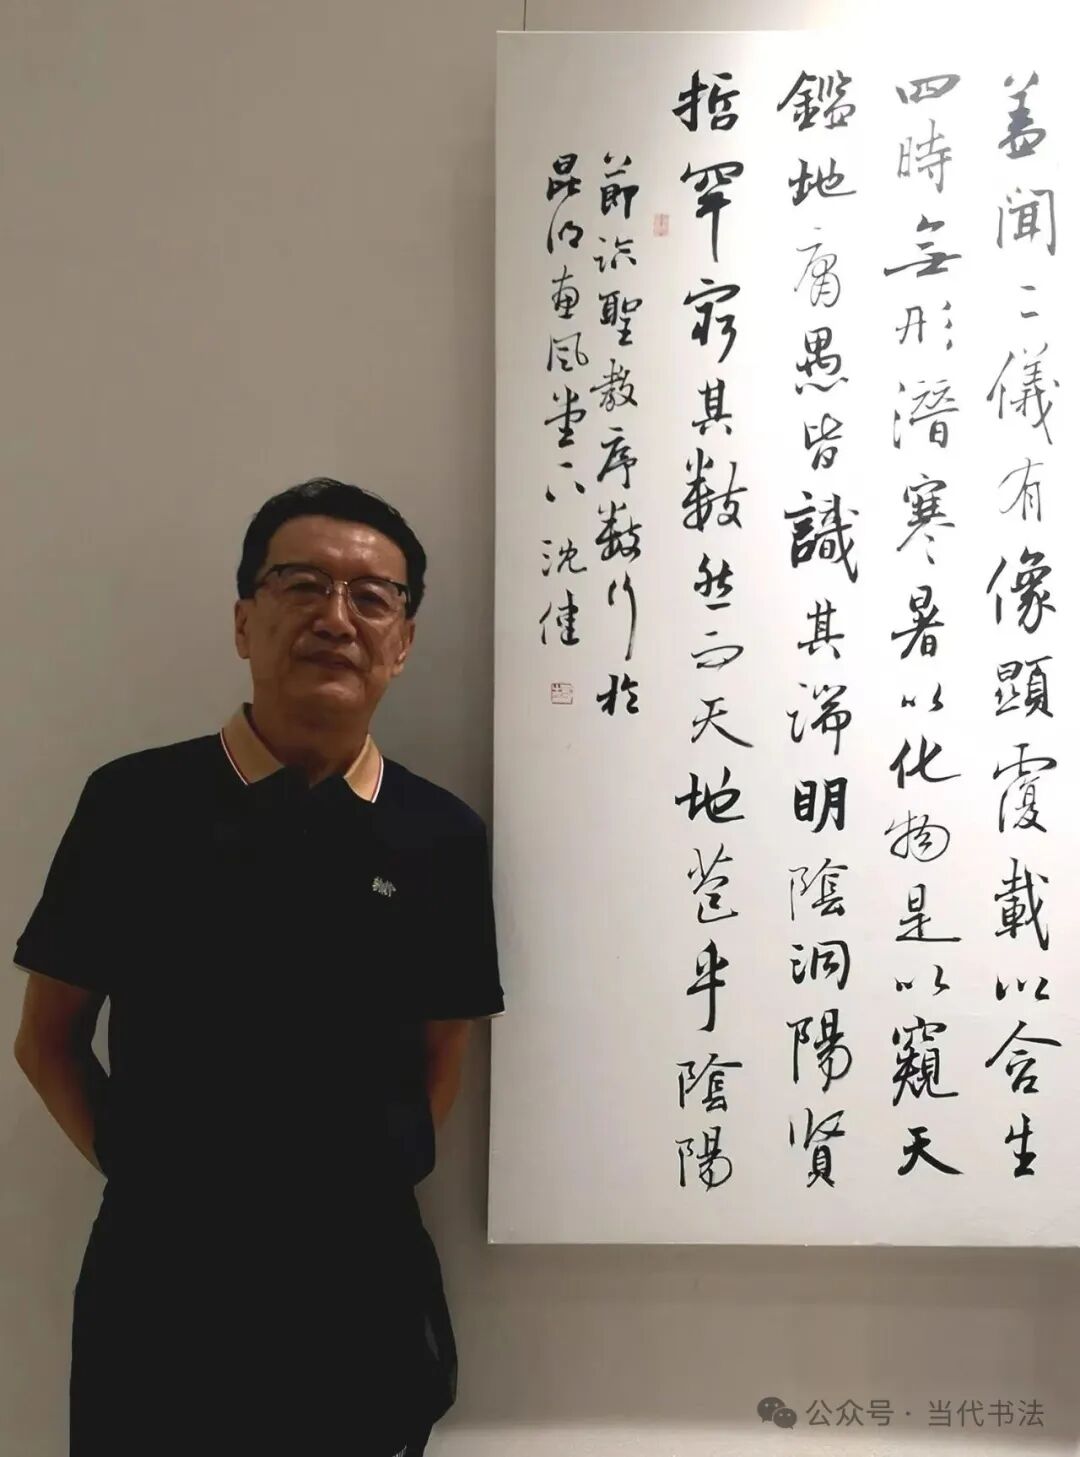 盖聞二儀有像顯覆載以含生
四時無形潛寒暑以化物是以窺天
鑑地庸愚皆識其端明陰洞陽賢
哲罕窮其數然而天地苞乎陰陽
節臨聖教序數行於
昆明惠風堂下 沈健
公众号 · 当代书法